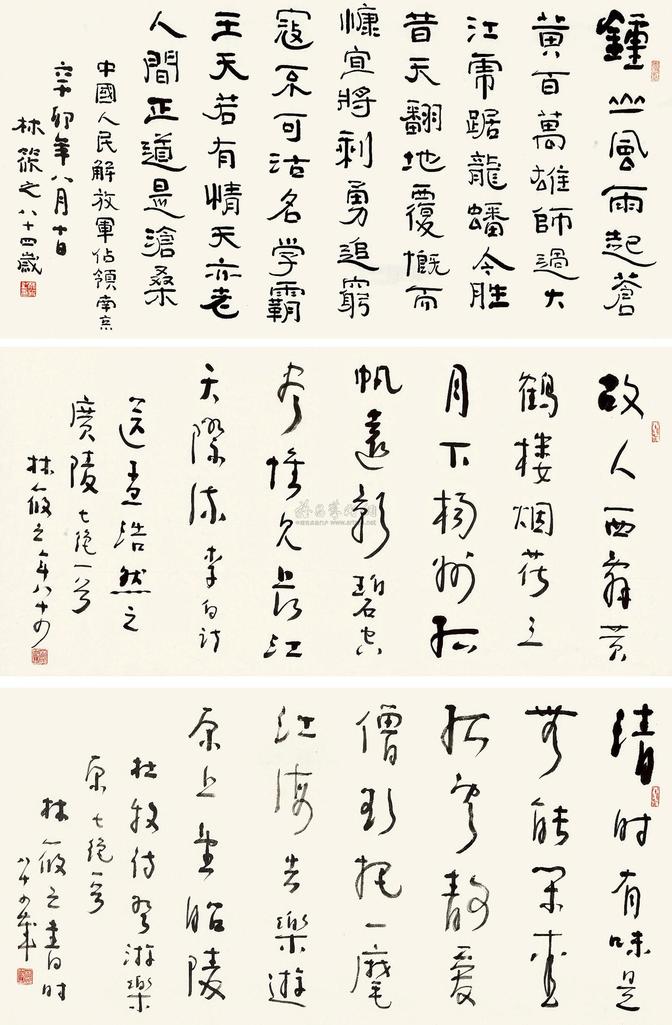 鍾山風雨起蒼
黃百萬雄師過大
江虎踞龍蟠今勝
昔天翻地覆慨而
慷宜將剩勇追窮
寇不可沽名学霸
王天若有情天亦老
人間正道是滄桑
中國人民解放軍佔領南京
辛卯年八月十日
林筱之八十四歲
故人西辭黃
鶴樓烟花三
月下揚州孤
帆遠影碧空
尽惟見長江
天際流 李白詩
送孟浩然之
廣陵七絕一首
林筱之年八十四
清時有味是
無能閑愛
孤雲靜愛
僧欲把一麾
江海去樂遊
原上望昭陵
杜牧詩登游樂
原七絕一首
林筱之書时
八十四歲